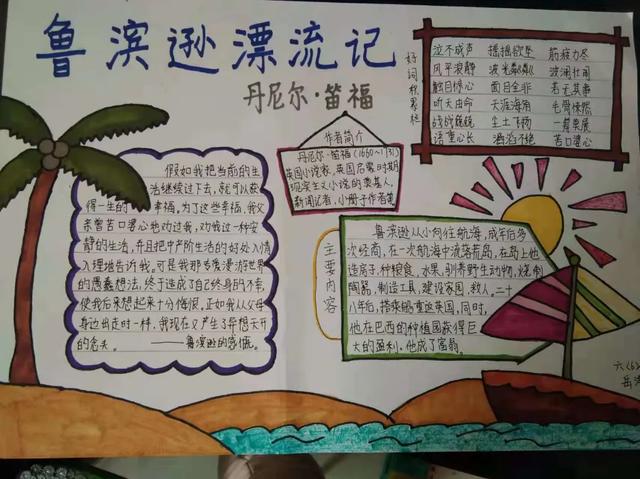 鲁滨逊漂流记
丹尼尔·笛福
好词积累栏
泣不成声 摇摇欲坠 筋疲力尽
风平浪静 波光粼粼 波澜壮阔
触目惊心 面目全非 若无其事
听天由命 天涯海角 毛骨悚然
战战兢兢 尘土飞扬
语重心长 滔滔不绝 苦口婆心
作者简介
丹尼尔·笛福(1660~1731)
英国小说家,英国启蒙时期
现实主义小说的奠基人,
新闻记者,小册子作者等
假如我把当前的生
活继续过下去,就可以获
得一生的幸福。为了这些幸福,我父
亲曾苦口婆心地劝过我,劝我过一种安
静的生活,并且把中产阶生活的好处入情
入理地告诉我。可是我那专爱漫游世界
的愚蠢想法,终于造成了自己终身的不幸,
使我后来想起来十分悔恨。正如我从父母
身边出走时一样,我现在又产生了异想天开
的念头。 ——鲁滨逊的忏悔。
主要内容
鲁滨逊从小向往航海,成年后多
次经商,在一次航海中流落荒岛,在岛上他
造房子,种粮食、水果,驯养野生动物,烧制
陶器,制造工具,建设家园,救人。二十
八年后,搭乘船重返英国,同时,
他在巴西的种植园获得巨
大的盈利。他成了富翁。